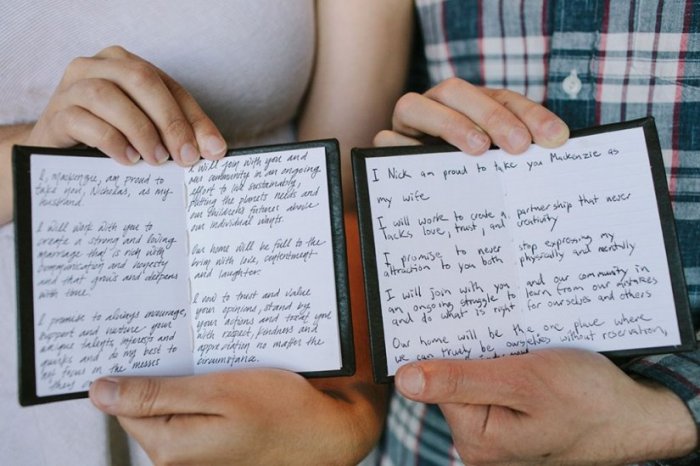 I, Mackenzie, am proud to
take you, Nicholas, as my
husband.
I will work with you to
create a strong and loving
marriage that is rich with
communication and honesty
and that grows and deepens
with time.
I promise to always encourage,
support and nurture your
unique talents, interests and
quirks and do my best to
not focus on the messes
they
I will join with you and
our community in an ongoing
effort to live sustainably,
putting the planets needs and
our children's futures above
our individual wants.
Our home will be full to the
brim with love, contentment
and laughter.
I vow to trust and value
your opinions, stand by
your actions and treat you
with respect, kindness and
appreciation no matter the
circumstance.
I Nick am proud to take you Mackenzie as
my wife
I will work to create a partnership that never
lacks love, trust, and creativity
I promise to never stop expressing my
attraction to you both physically and mentally
I will join with you and our community in
an ongoing struggle to learn from our mistakes
and do what is right for ourselves and others
Our home will be the one place where
we can truely be ourselves without reservation,